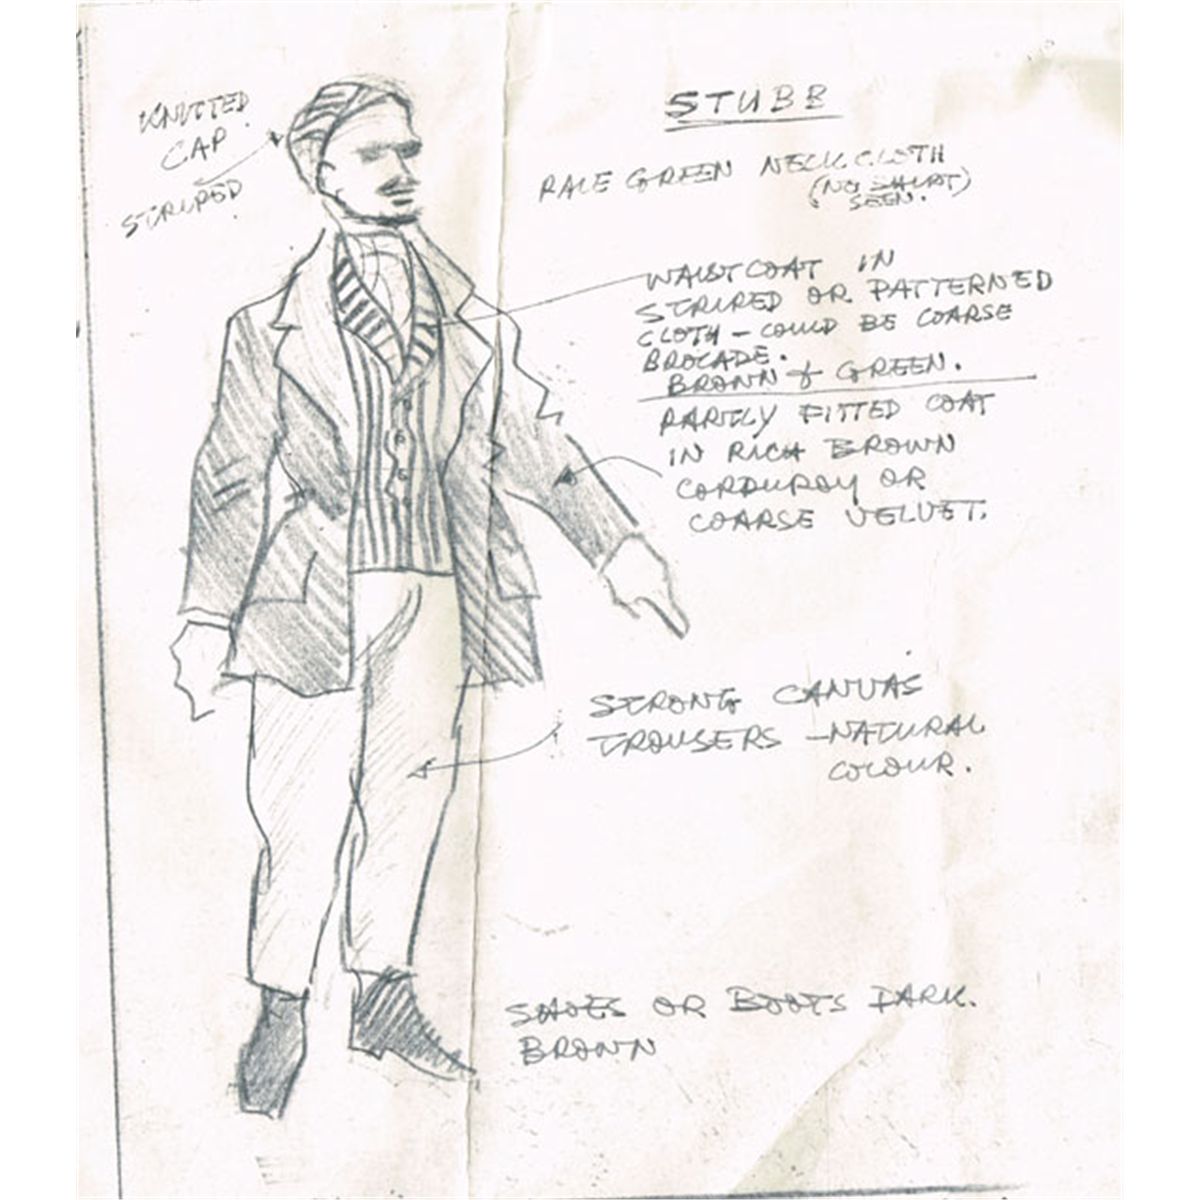 KNITTED
CAP.
STRIPED
STUBB
PALE GREEN NECK CLOTH
(NO SHIRT)
SEEN.
WAISTCOAT IN
STRIPED OR PATTERNED
CLOTH – COULD BE COARSE
BROCADE.
BROWN & GREEN.
PARTLY FITTED COAT
IN RICH BROWN
CORDUROY OR
COARSE VELVET.
STRONG CANVAS
TROUSERS – NATURAL
COLOUR.
SHOES OR BOOTS DARK.
BROWN